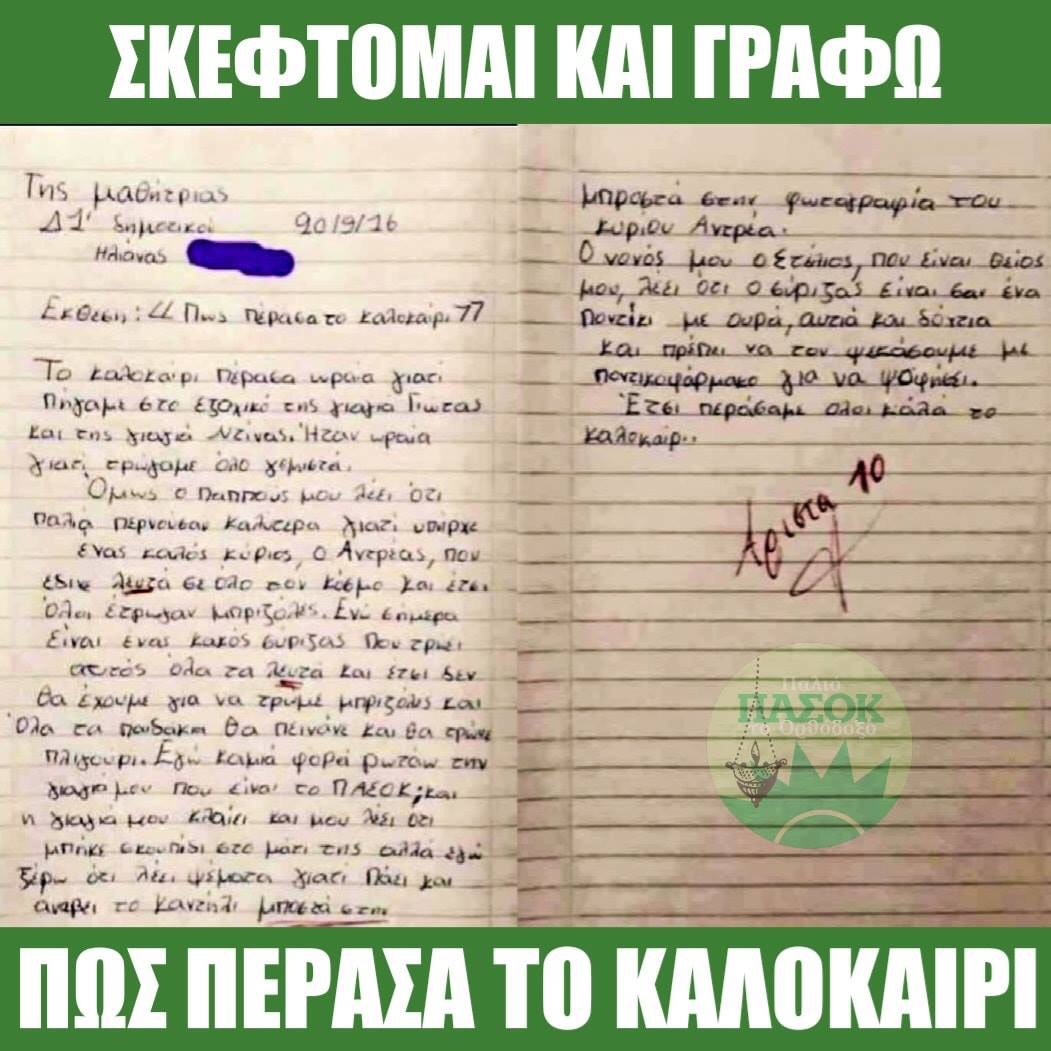 ΣΚΕΦΤΟΜΑΙ ΚΑΙ ΓΡΑΦΩ
Της μαθήτριας
Δ1' δημοτικού 20/9/16
Ηλιάνας
Εκθεση: "Πως πέρασα το καλοκαίρι"
Το καλοκαίρι πέρασα ωραία γιατί
πήγαμε στο εξοχικό της γιαγιά Γιωτας
και της γιαγιά Ντίνας. Ήταν ωραία
γιατί τρώγαμε όλο γεμιστά.
Όμως ο παππούς μου λέει ότι
παλιά περνούσαν καλύτερα γιατί υπήρχε
ένας καλός κύριος, ο Αντρέας, που
έδινε λευτά σε όλο τον κόσμο και έτσι
όλοι έτρωγαν μπριζόλες. Ενώ σήμερα
είναι ένας κακός σύριζας που τρώει
αυτός όλα τα λευτά και έτσι δεν
θα έχουμε για να τρώμε μπριζόλες και
όλα τα παιδάκια θα πεινάνε και θα τρώνε
πλιγούρι. Εγώ καμιά φορά ρωτάω την
γιαγιά μου που είναι το ΠΑΣΟΚ; και
η γιαγιά μου κλαίει και μου λέει ότι
μπήκε σκουπίδι στο μάτι της αλλά εγώ
ξέρω ότι λέει ψέματα γιατί πάει και
ανάβει το καντήλι μποστά στην
μπροστά στην φωτογραφία του
κύριου Αντρέα.
Ο νονός μου ο Στέλιος, που είναι θείος
μου, λέει ότι ο σύριζας είναι σαν ένα
ποντίκι με ουρά, αυτιά και δόντια
και πρέπει να τον ψεκάσουμε με
ποντικοφάρμακο για να ψοφήσει.
Έτσι περάσαμε όλοι καλά το
καλοκαίρι.
Άριστα 10
Παλιό
ΠΑΣΟΚ
το Ορθόδοξο
ΠΩΣ ΠΕΡΑΣΑ ΤΟ ΚΑΛΟΚΑΙΡΙ